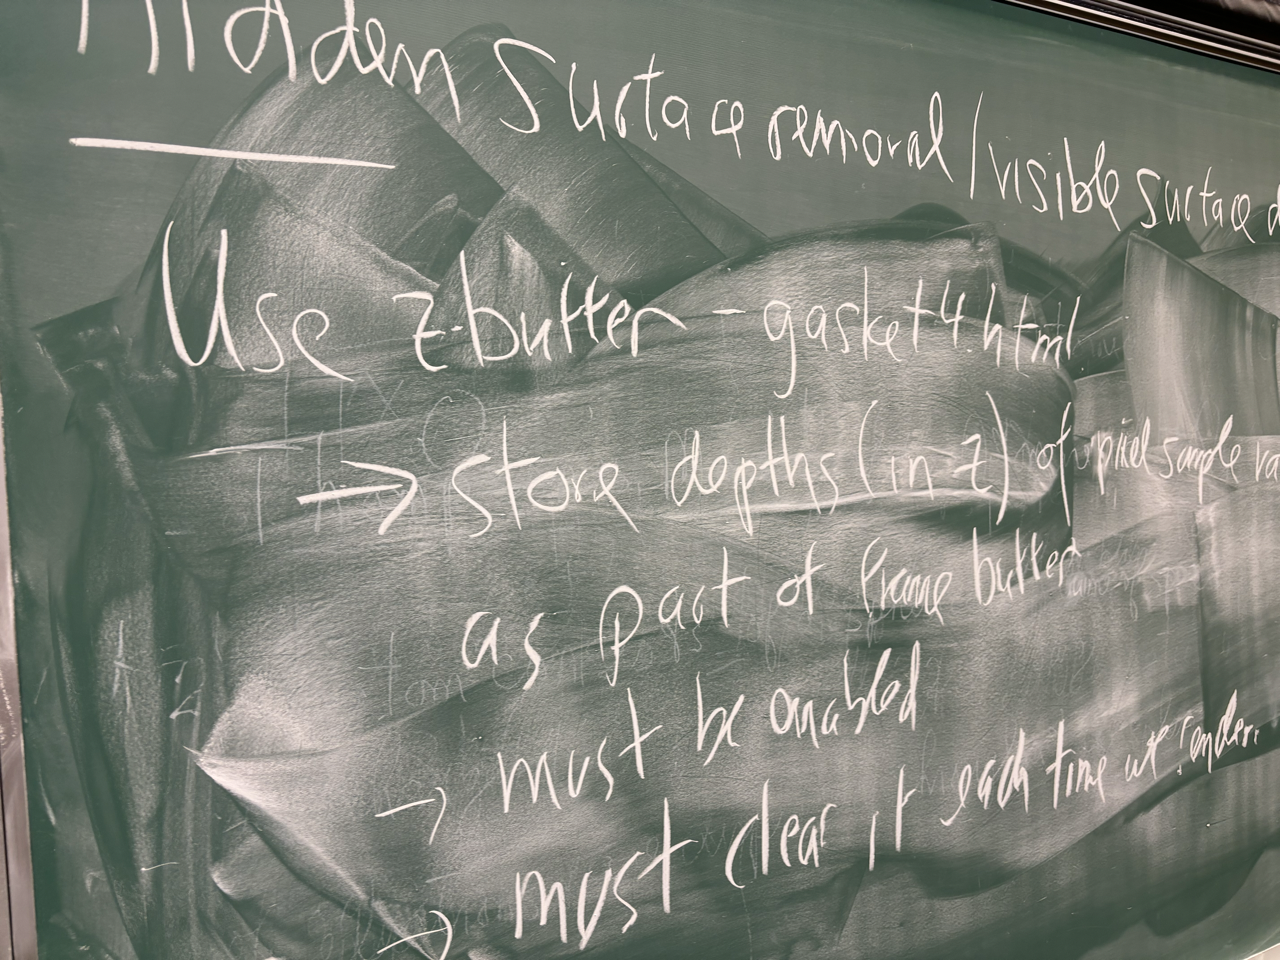 Hidden Surface removal / visible surface
Use z-buffer - gasket4.html
→ store depths (in z) of pixel sample
as part of frame buffer
→ must be enabled
→ must clear it each time we render.